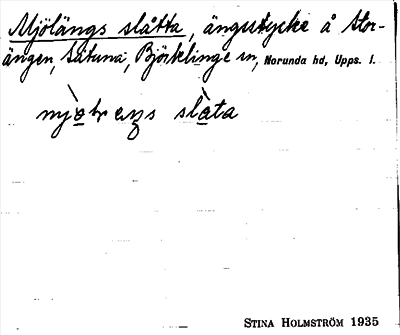 Mjölängs slåtta, ängsstycke å Stor-
ängen, Sätuna, Björklinge sn, Norunda hd, Upps. l.
slàta
STINA HOLMSTRÖM 1935